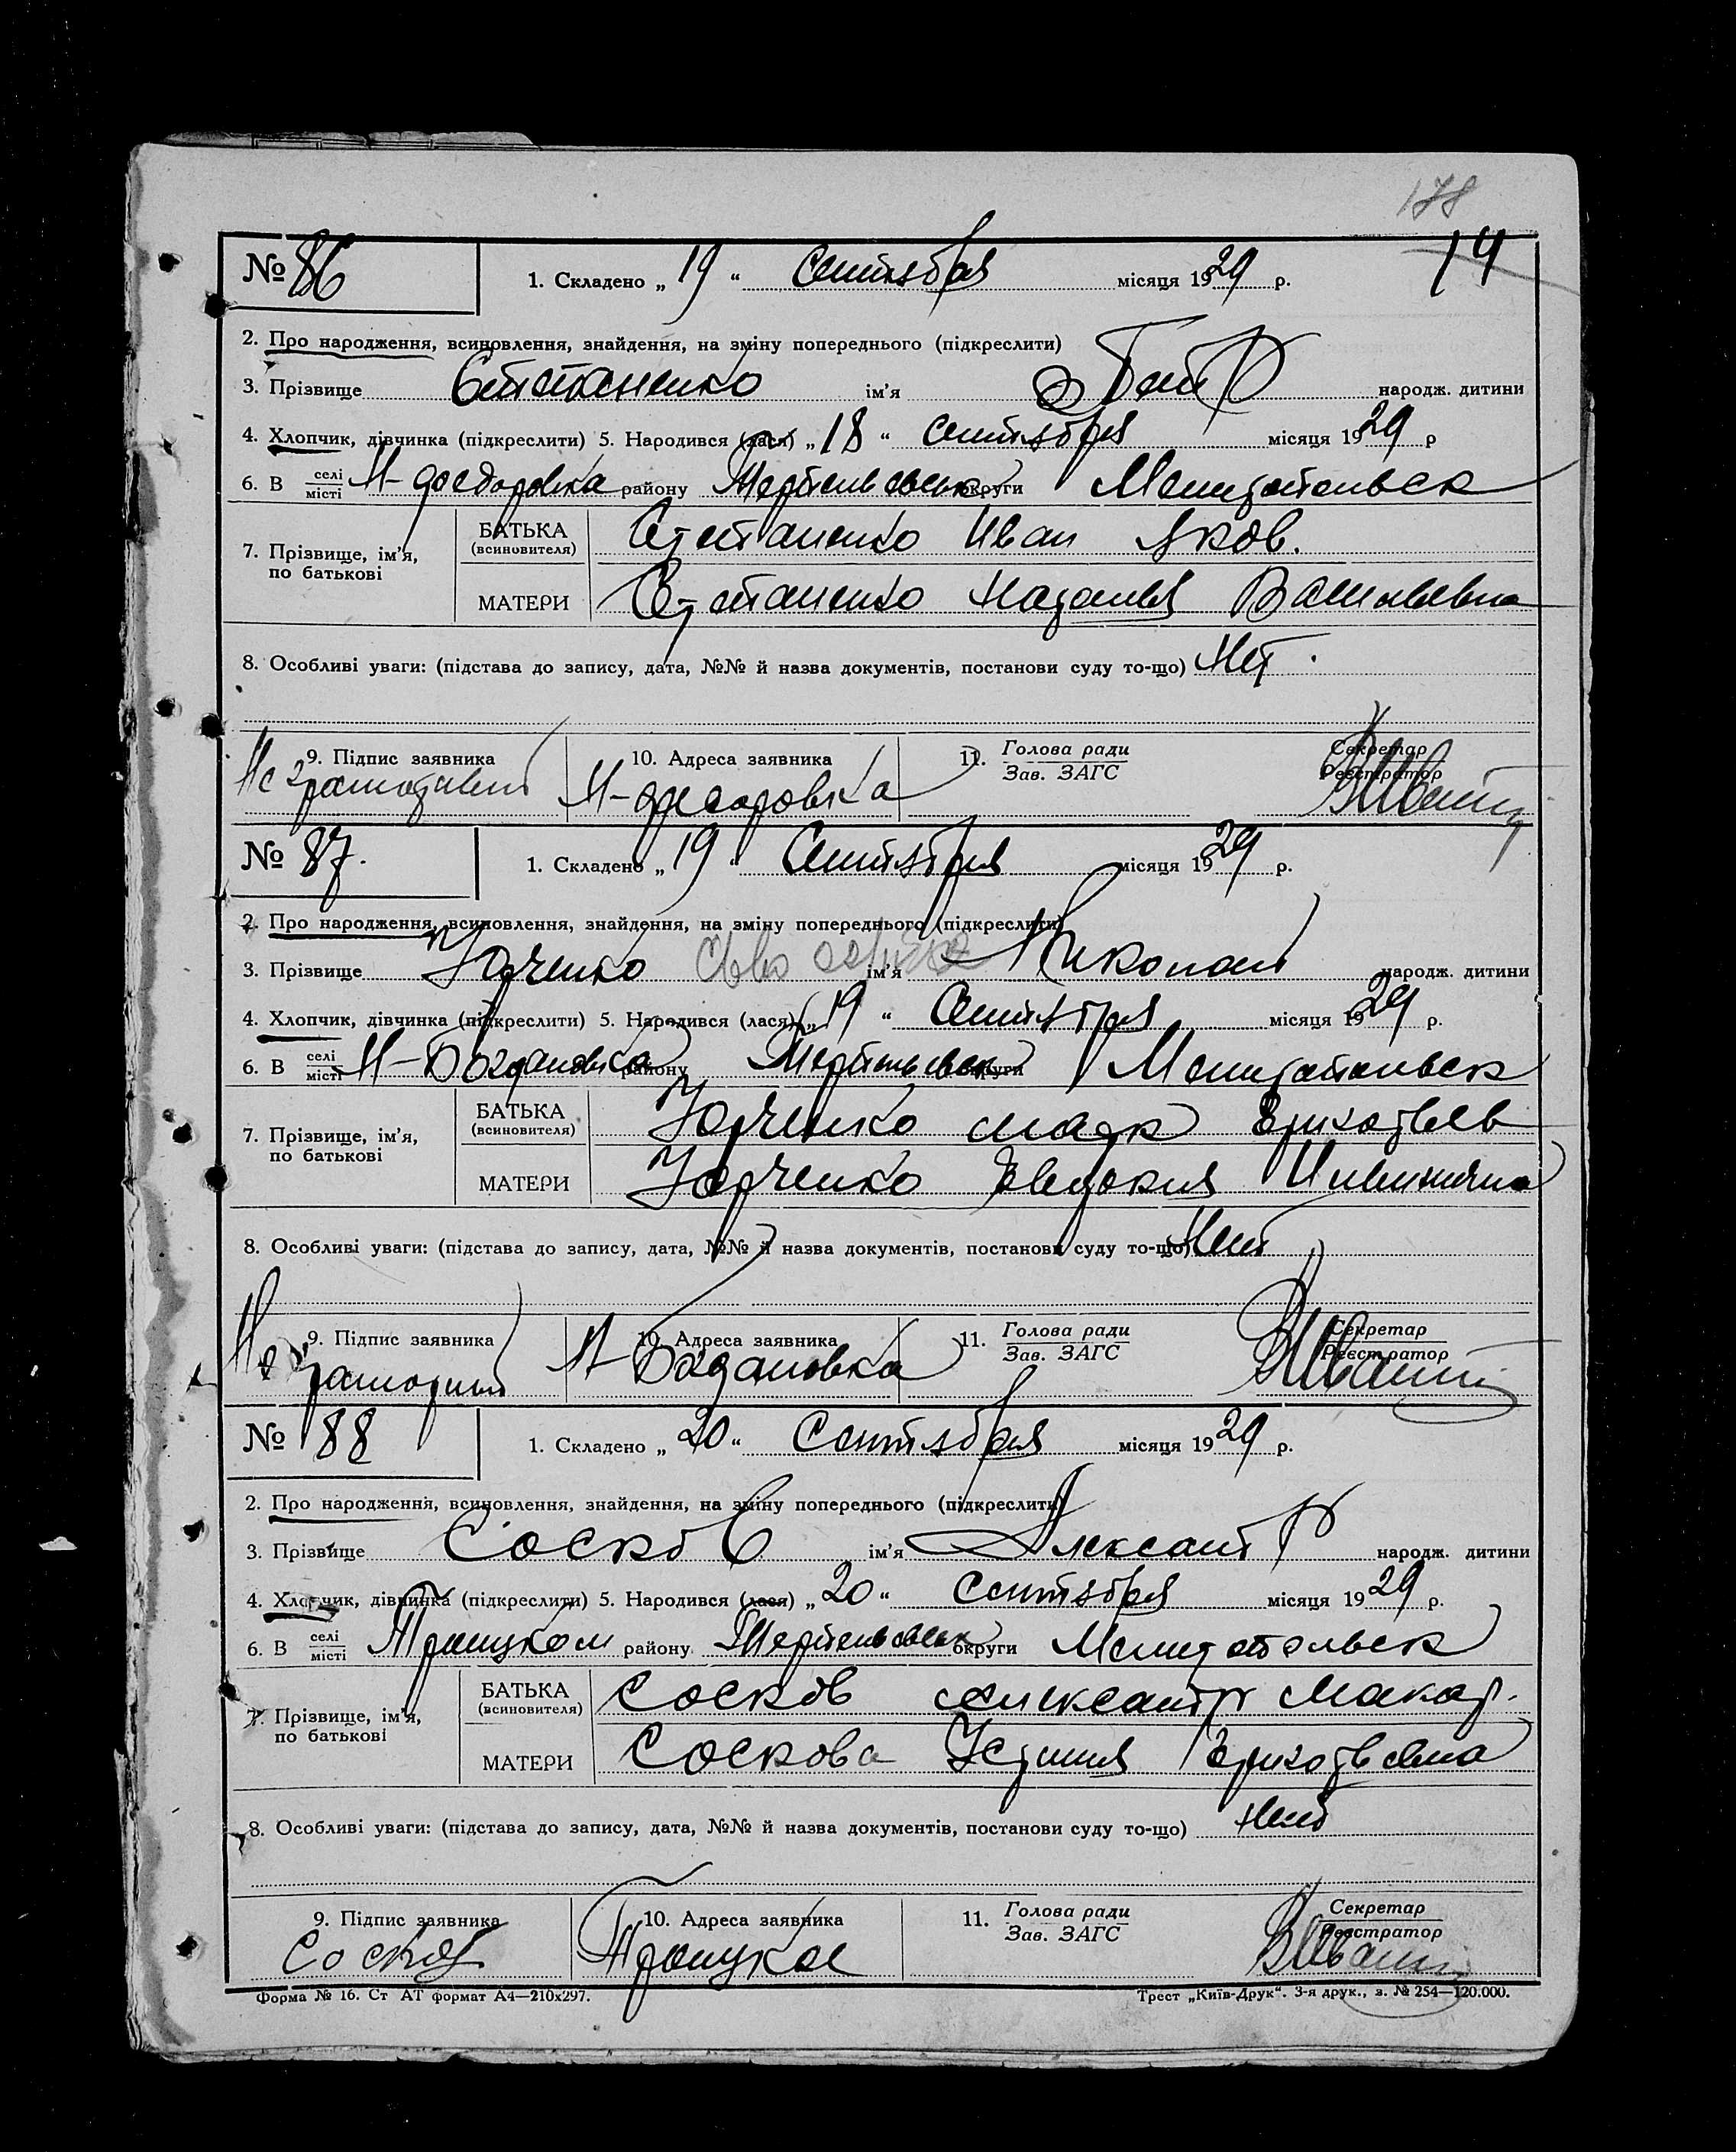 178
14
№ 86
1. Складено „ 19 “ Сентября місяця 1929 р.
2. Про народження, всиновлення, знайдення, на зміну попереднього (підкреслити)
3. Прізвище Степаненко ім'я Петр народж. дитини
4. Хлопчик, дівчинка (підкреслити) 5. Народився (лася) „ 18 “ Сентября місяця 1929 р
6. В селі/місті М-федоровка району Терпеньевськ округи Мелитопольск
7. Прізвище, ім'я, по батькові
БАТЬКА (всиновителя) Степаненко Иван Яков.
МАТЕРИ Степаненко Наталья Васильевна
8. Особливі уваги: (підстава до запису, дата, №№ й назва документів, постанови суду то-що) Нет.
9. Підпис заявника 10. Адреса заявника 11. Голова ради Зав. ЗАГС Секретар Реєстратор
Не грамотный М-федоровка
№ 87.
1. Складено „ 19 “ Сентября місяця 1929 р.
2. Про народження, всиновлення, знайдення, на зміну попереднього (підкреслити)
3. Прізвище Юрченко ім'я Николай народж. дитини
4. Хлопчик, дівчинка (підкреслити) 5. Народився (лася) „ 19 “ Сентября місяця 1929 р.
6. В селі/місті М-Богдановка району Терпеньевск округи Мелитопольск
7. Прізвище, ім'я, по батькові
БАТЬКА (всиновителя) Юрченко
МАТЕРИ Юрченко Евдокия
8. Особливі уваги: (підстава до запису, дата, №№ й назва документів, постанови суду то-що) Нет
9. Підпис заявника 10. Адреса заявника 11. Голова ради Зав. ЗАГС Секретар Реєстратор
Не грамотный М-Богдановка
№ 88
1. Складено „ 20 “ Сентября місяця 1929 р.
2. Про народження, всиновлення, знайдення, на зміну попереднього (підкреслити)
3. Прізвище Сосков ім'я Александр народж. дитини
4. Хлопчик, дівчинка (підкреслити) 5. Народився (лася) „ 20 “ Сентября місяця 1929 р.
6. В селі/місті Троицком району Терпеньевськ округи Мелитопольск
7. Прізвище, ім'я, по батькові
БАТЬКА (всиновителя) Сосков Александр Макар.
МАТЕРИ Соскова Устиния
8. Особливі уваги: (підстава до запису, дата, №№ й назва документів, постанови суду то-що) Нет
9. Підпис заявника 10. Адреса заявника 11. Голова ради Зав. ЗАГС Секретар Реєстратор
Сосков Троицкое
Форма № 16. Ст АТ формат А4—210х297. Трест „Київ-Друк“. 3-я друк., з. № 254—120.000.